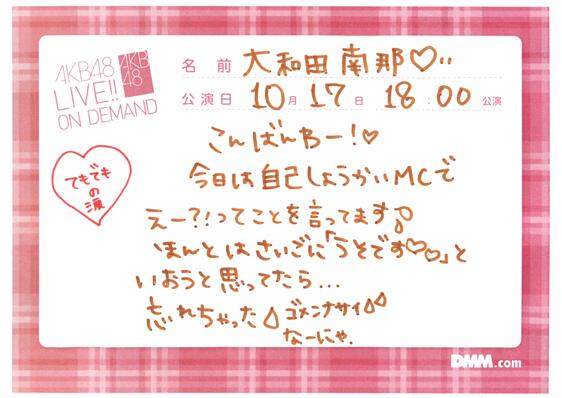 AKB48
LIVE!!
ON DEMAND
AKB
48
名 前 大和田 南那♡
公演日 10月 17日 18:00 公演
こんばんわー!♡
てもでも
の
涙
今日は自己しょうかいMCで
えー?!ってことを言ってます
ほんとはさいごに「うそです♡♡」と
いおうと思ってたら...
忘れちゃった ゴメンナサイ
なーにゃ.
DMM.com